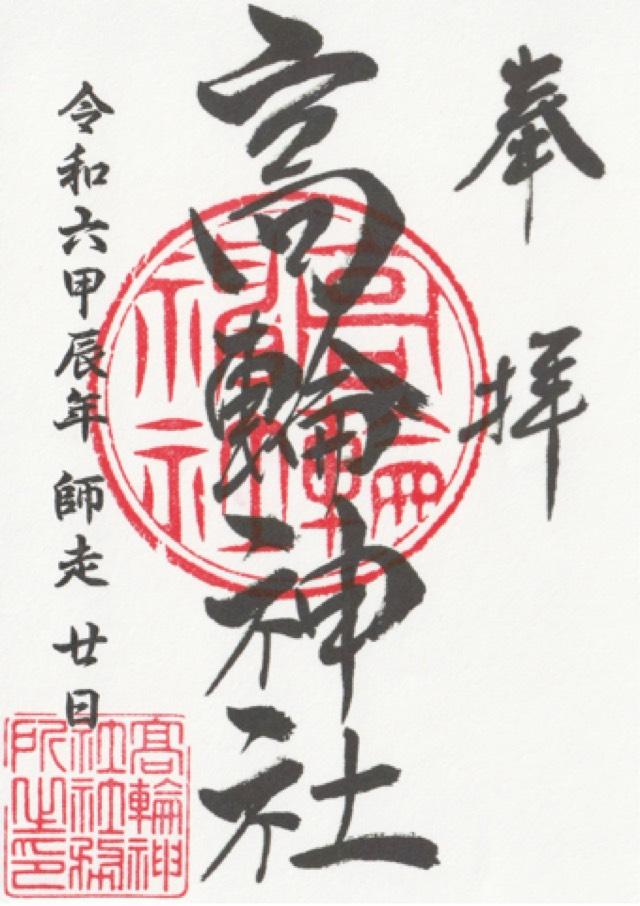 奉拝
高輪神社
令和六甲辰年 師走 廿日
高輪神社
髙輪神社社務所之印